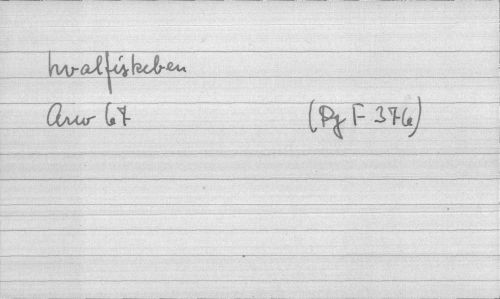 hvalfiskeben
Arw 67 (Pg F 376)